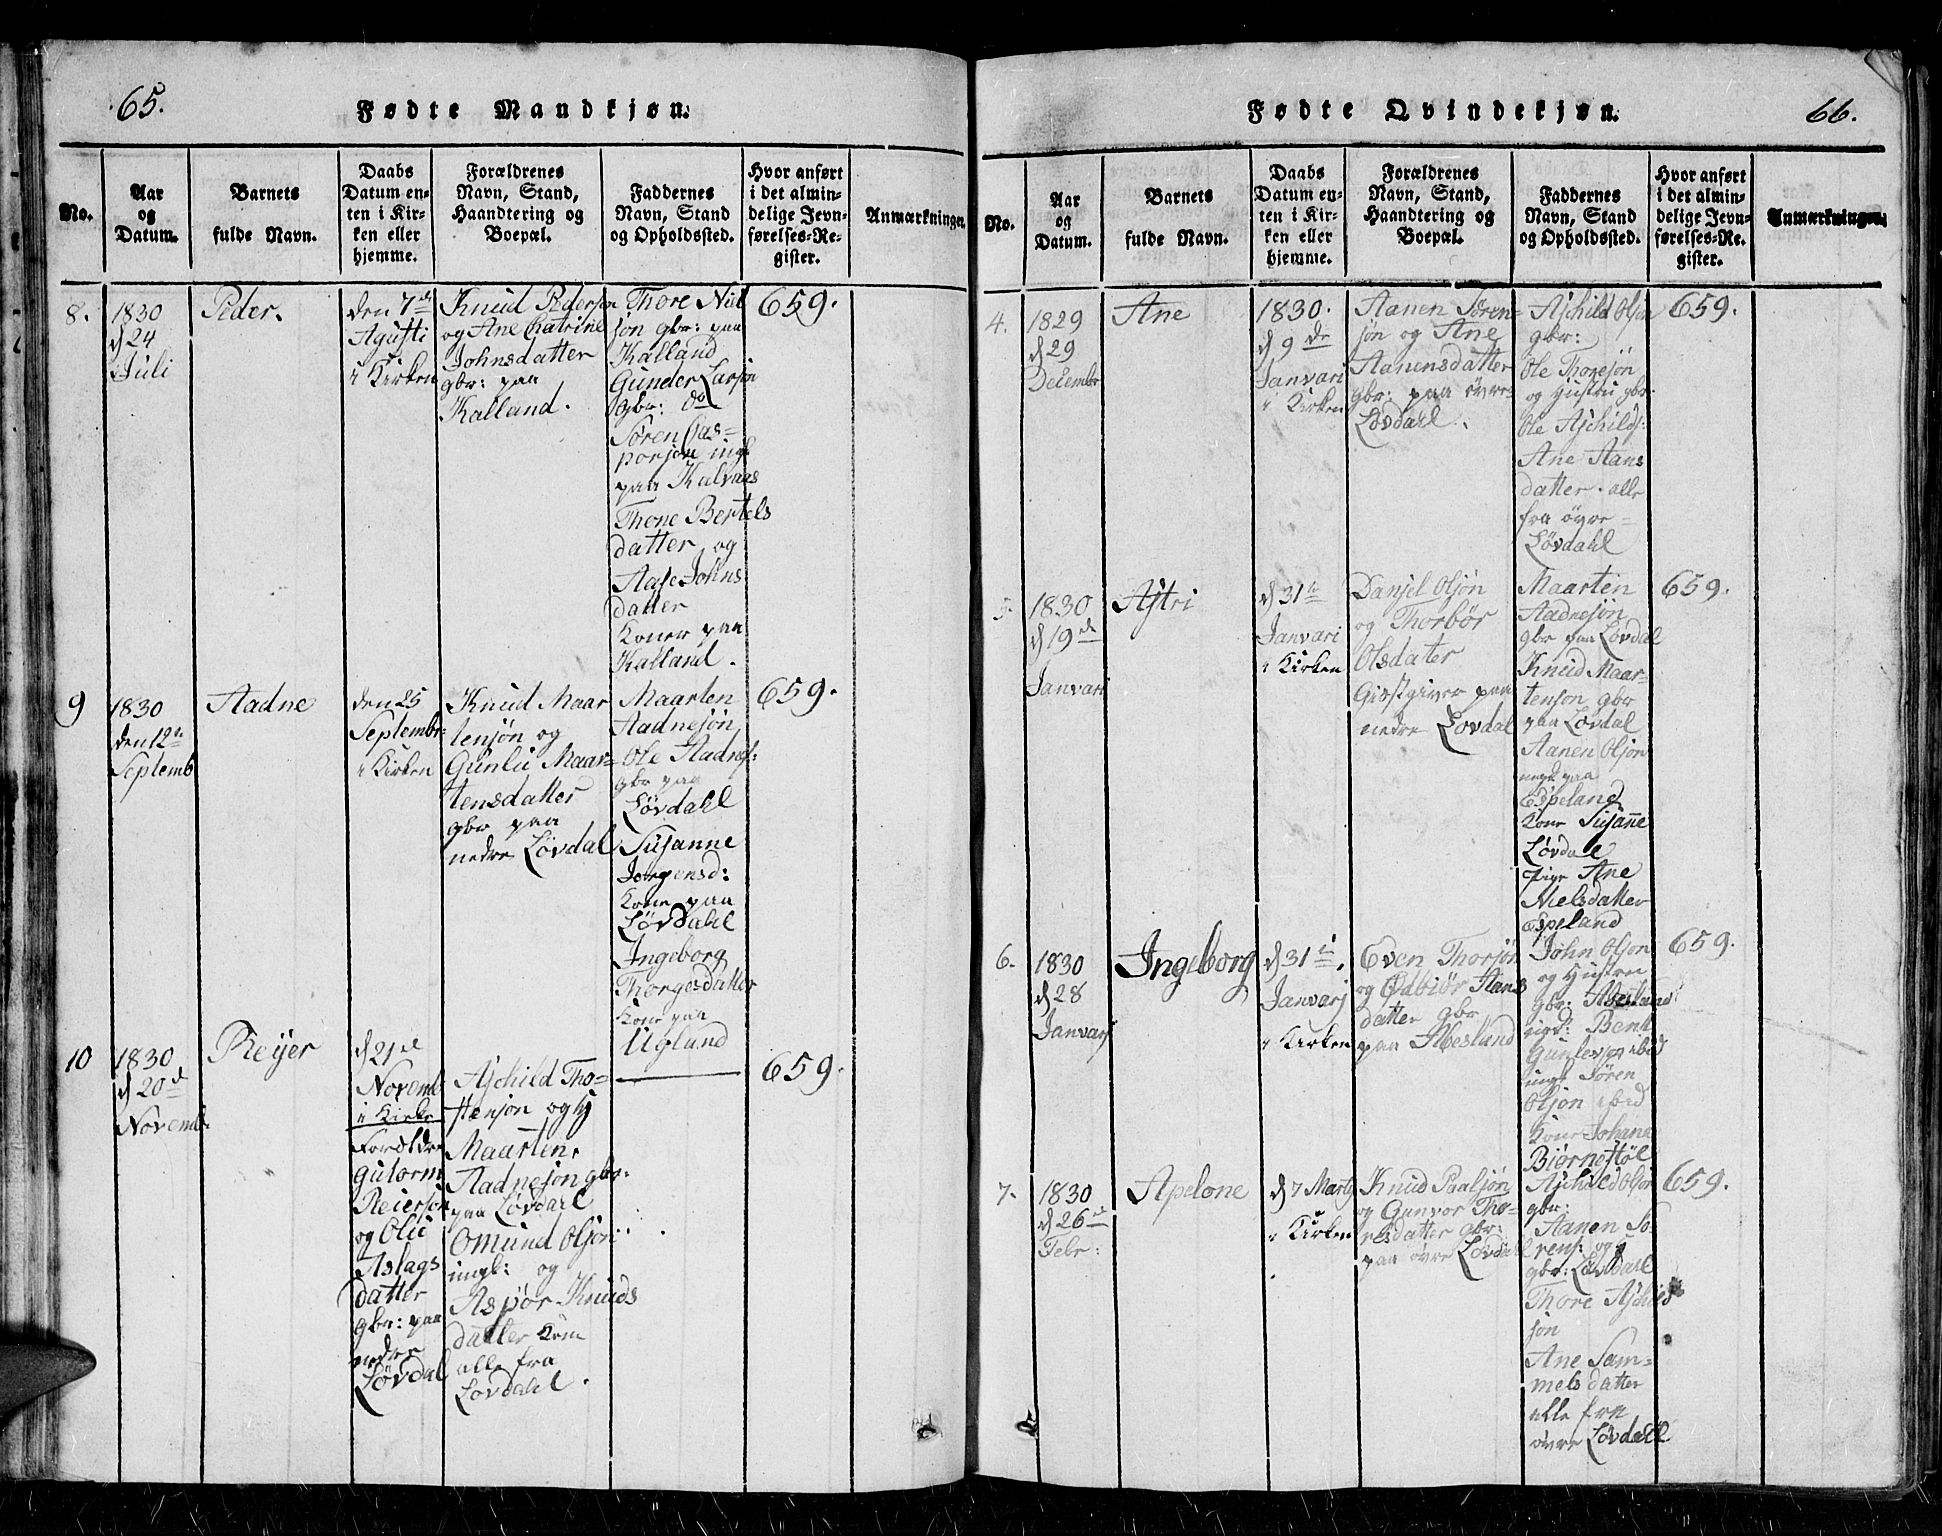 65.
Fødte Mandkjøn.
No.
Aar
og
Datum.
Barnets
fulde Navn.
Daabs
Datum en-
ten i Kir-
ken eller
hjemme.
Forældrenes
Navn, Stand,
Haandtering og
Boepæl.
Faddernes
Navn, Stand
og Opholdssted.
Hvor anført
i det almin-
delige Jevn-
førelses-Re-
gister.
Anmærkninger.
8.
1830
d 24
Juli
Peder.
den 7de
Agusti
i Kirken
Knud Pedersøn
og Ane Catrine
Johnsdatter
gbr: paa
Kalland.
Thore Niel
søn gbr: paa
Kalland
Gunder Larsøn
gbr: do
Søren Cas-
porsøn ingk
paa Kalvaas
Thone Bertels
datter og
Aase Johns
datter
Koner paa
Kalland.
659.
9
1830
den 12te
Septemb
Aadne
den 25
Septembr
i Kirken
Knud Maar
tensøn og
Gunlu Maar-
tensdatter
gbr paa
nedre Løvdal
Maarten
Aadnesøn
Ole Aadnes:
gbr paa
Løvdahl
Susanne
Jorgensd:
Kone paa
Løvdahl
Ingeborg
Thorgesdatter
Kone paa
Ugland
659.
10
1830
d 20de
Novemb.
Reijer
d 21de
Novemb
i Kirke
Forældre
Gutorm
Reiersøn
og Olu
Aslags
datter
gbr: paa
nedre
Løvdal
Ajchild Tho-
stensøn og
Maarten
Aadnesøn gbr.
paa Løvdahl
Omund Olsøn
ingk: og
Aspor Knuds
datter Kone
alle fra
Løvdahl.
659.
66.
Fødte Qvindekjøn.
No.
Aar
og
Datum.
Barnets
fulde Navn.
Daabs
Datum en-
ten i Kir-
ken eller
hjemme.
Forældrenes
Navn, Stand,
Haandtering og
Boepæl.
Faddernes
Navn, Stand
og Opholdssted.
Hvor anført
i det almin-
delige Jevn-
førelses-Re-
gister.
Anmærkninger.
4.
1829
d 29
Decembr
Ane
1830.
d 9de
Janvari
i Kirken
Aanen Søren-
søn og Ane
Aanensdatter
gbr: paa øvre
Løvdahl.
Ajchild Olsøn
gbr:
Ole Thoresøn
og Hustru gbr.
Ole Ajchilds:
Ane Aans
datter. alle
fra øvre-
Løvdahl
659.
5.
1830
d 19de
Janvari
Astri
d 31te
Janvari
i Kirken
Danjel Olsøn
og Thorbør
Olsdater
Giæstgiver paa
nedre Løvdal
Maarten
Aadnesøn
gbr paa Løvdal
Knud Maar-
tensøn gbr
paa Løvdal
Aanen Olsøn
paa
Espeland
Kone Susanne
Løvdal
Pige Ane
Nielsdatter
Espeland
659.
6.
1830
d 28
Janvarj
Ingeborg
d 31te.
Janvarj
i Kirken
Even Thorsøn
og Ødbiør Aans
datter gbr
paa Abesland
John Olsøn
og Hustru
gbr: Abesland
Bent
Gunlevsøn ibid
ingk Søren
Olsøn ibid
Kone Johane
Biørnestøl
659.
7.
1830
d 26de
Febr:
Apelone
d 7 Martj
i Kirken
Knud Paalsøn
og Gunvor Tho-
resdatter gbr:
paa øvre Løvdal
Ajchild Olsøn
gbr:
Aanen Sø-
rens: og
gbr: Løvdahl
Thore Ajchild
søn
Ane Sam-
mels datter
alle fra
øvre Løvdahl
659.